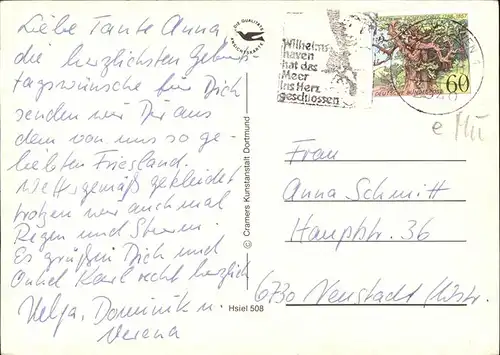 Liebe Tante Anna,
die herzlichsten Geburts-
tagswünsche für Dich
senden wir Dir aus
dem von uns so ge-
liebten Friesland.
Wettergemäß gekleidet
trotzen wir auch mal
Regen und Sturm.
Es grüßen Dich und
Onkel Karl recht herzlich
Helga, Dominik u.
Verena
DIE QUALITÄTS
ANSICHTSKARTE
© Cramers Kunstanstalt Dortmund
Hsiel 508
Wilhelms-
haven
hat das
Meer
ins Herz
geschlossen
60
Frau
Anna Schmitt
Hauptstr. 36
6730 Neustadt